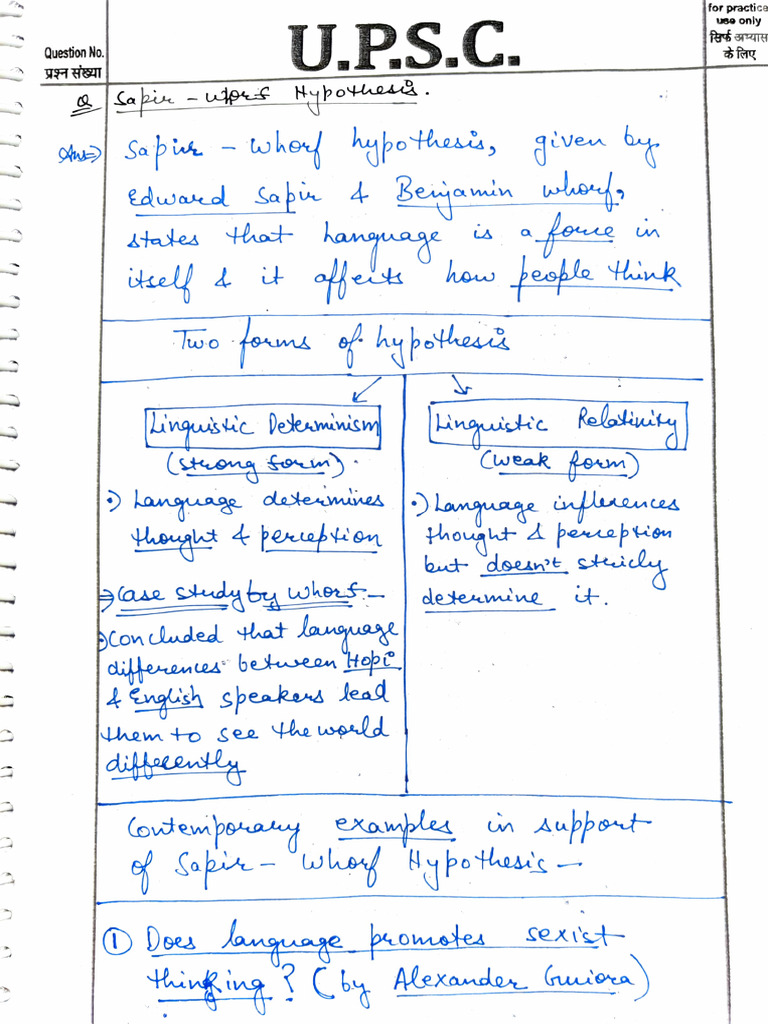 Question No.
प्रश्न संख्या
U.P.S.C.
for practice
use only
सिर्फ अभ्यास
के लिए
Q Sapir - Whorf Hypothesis.
Ans⇒ Sapir - Whorf hypothesis, given by
Edward Sapir & Benjamin Whorf,
states that language is a force in
itself & it affects how people think
Two forms of hypothesis
Linguistic Determinism
(strong form).
•) Language determines
thought & perception
⇒ Case study by Whorf -
•) Concluded that language
differences between Hopi
& English speakers lead
them to see the world
differently
Linguistic Relativity
(weak form)
•) Language influences
thought & perception
but doesn't stricly
determine it.
Contemporary examples in support
of Sapir - Whorf Hypothesis -
① Does language promotes sexist
thinking? (by Alexander Guiora)